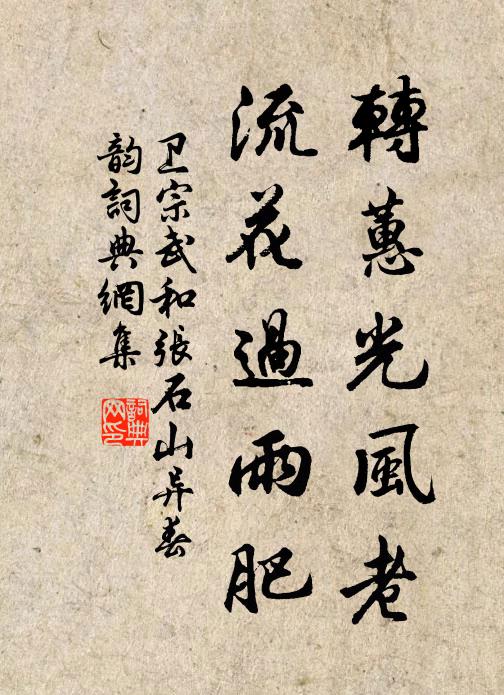 轉蕙光風老
流花過雨肥
卫宗武和張石山异春
韵詞典網集
詞典网印